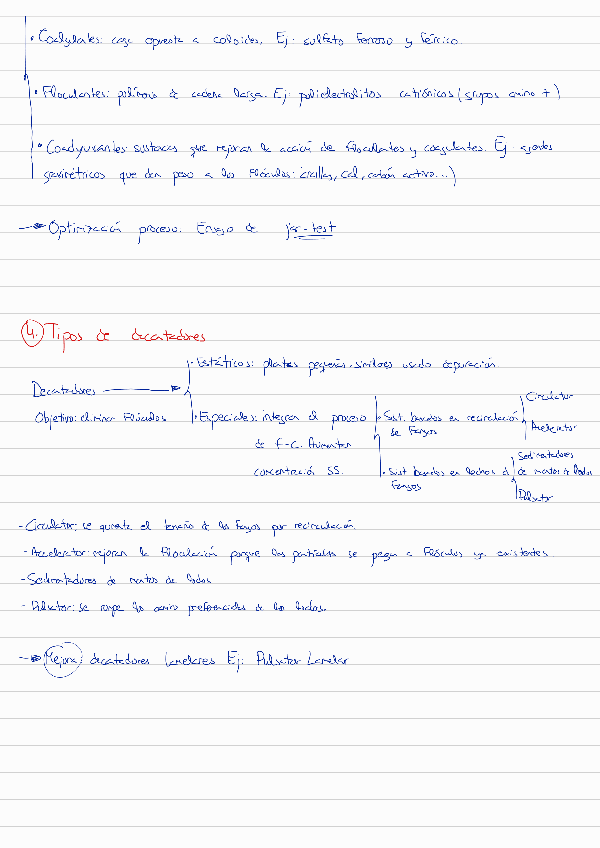 • Coagulantes: carga opuesta a coloides. Ej: sulfato ferroso y férrico.
• Floculantes: polímeros de cadena larga. Ej: polielectrolitos catiónicos (grupos amino +)
• Coadyuvantes: sustancias que mejoran la acción de floculantes y coagulantes. Ej: agentes
gravimétricos que dan peso a los flóculos: arcillas, cal, carbón activo...)
→ Optimización proceso. Ensayo de jar-test
4. Tipos de decantadores
• Estáticos: plantas pequeñas, similares usado depuración.
Decantadores →
Objetivo: eliminar flóculos
• Especiales: integran el proceso
de F-C. Aumentan
concentración SS.
• Sist. basados en recirculación
de fangos
Circulator
Accelerator
• Sist. basados en lechos d
fangos
Sedimentadores
de manto de lodos
Pulsator
- Circulator: se aumenta el tamaño de los fangos por recirculación.
- Accelerator: mejoran la floculación porque las partículas se pegan a flóculos ya existentes
- Sedimentadores de mantos de lodos.
- Pulsator: se rompe los camino preferenciales de los lodos.
→ Mejora: decantadores lamelares Ej: Pulsator Lamelar